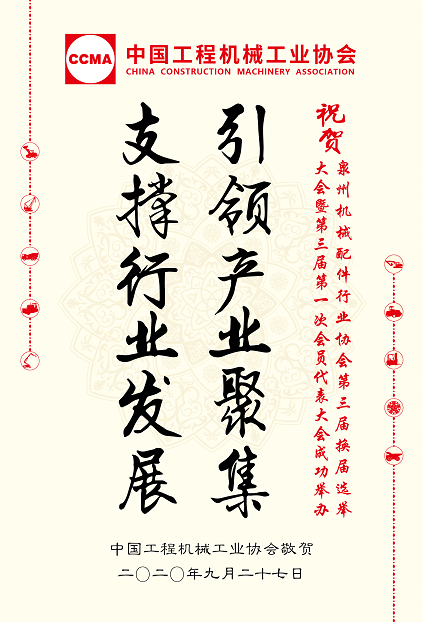 CCMA
中国工程机械工业协会
CHINA CONSTRUCTION MACHINERY ASSOCIATION
祝贺
泉州机械配件行业协会第三届换届选举
大会暨第三届第一次会员代表大会成功举办
引领产业聚集
支撑行业发展
中国工程机械工业协会敬贺
二〇二〇年九月二十七日